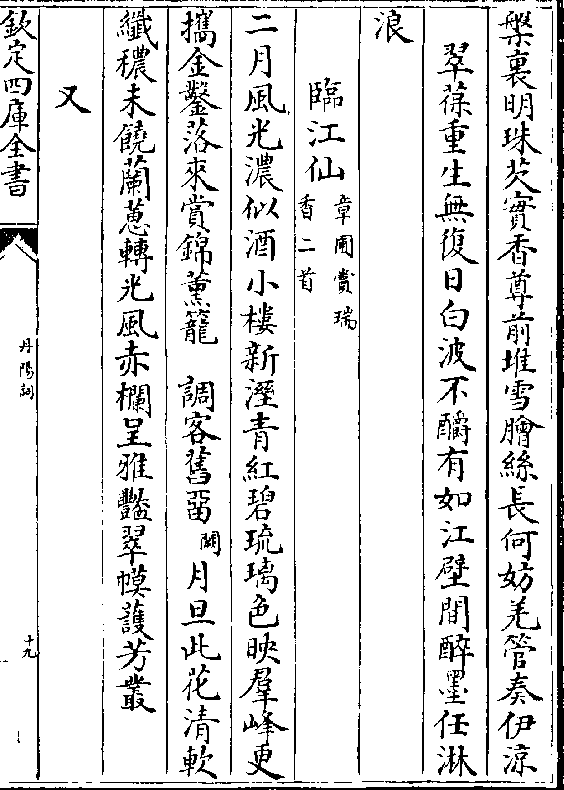 槃裏明珠芡實香尊前堆雪膾絲長何妨羌管奏伊涼
翠葆重生無復日白波不釂有如江壁間醉墨任淋
浪
臨江仙 章圃賞瑞香二首
二月風光濃似酒小樓新溼青紅碧琉璃色映羣峰更
攜金鑿落來賞錦薰籠 調客舊留闕月旦此花清軟
纖穠未饒蘭蕙轉光風赤欄呈雅豔翠幙護芳叢
又
欽定四庫全書
丹陽詞
十九